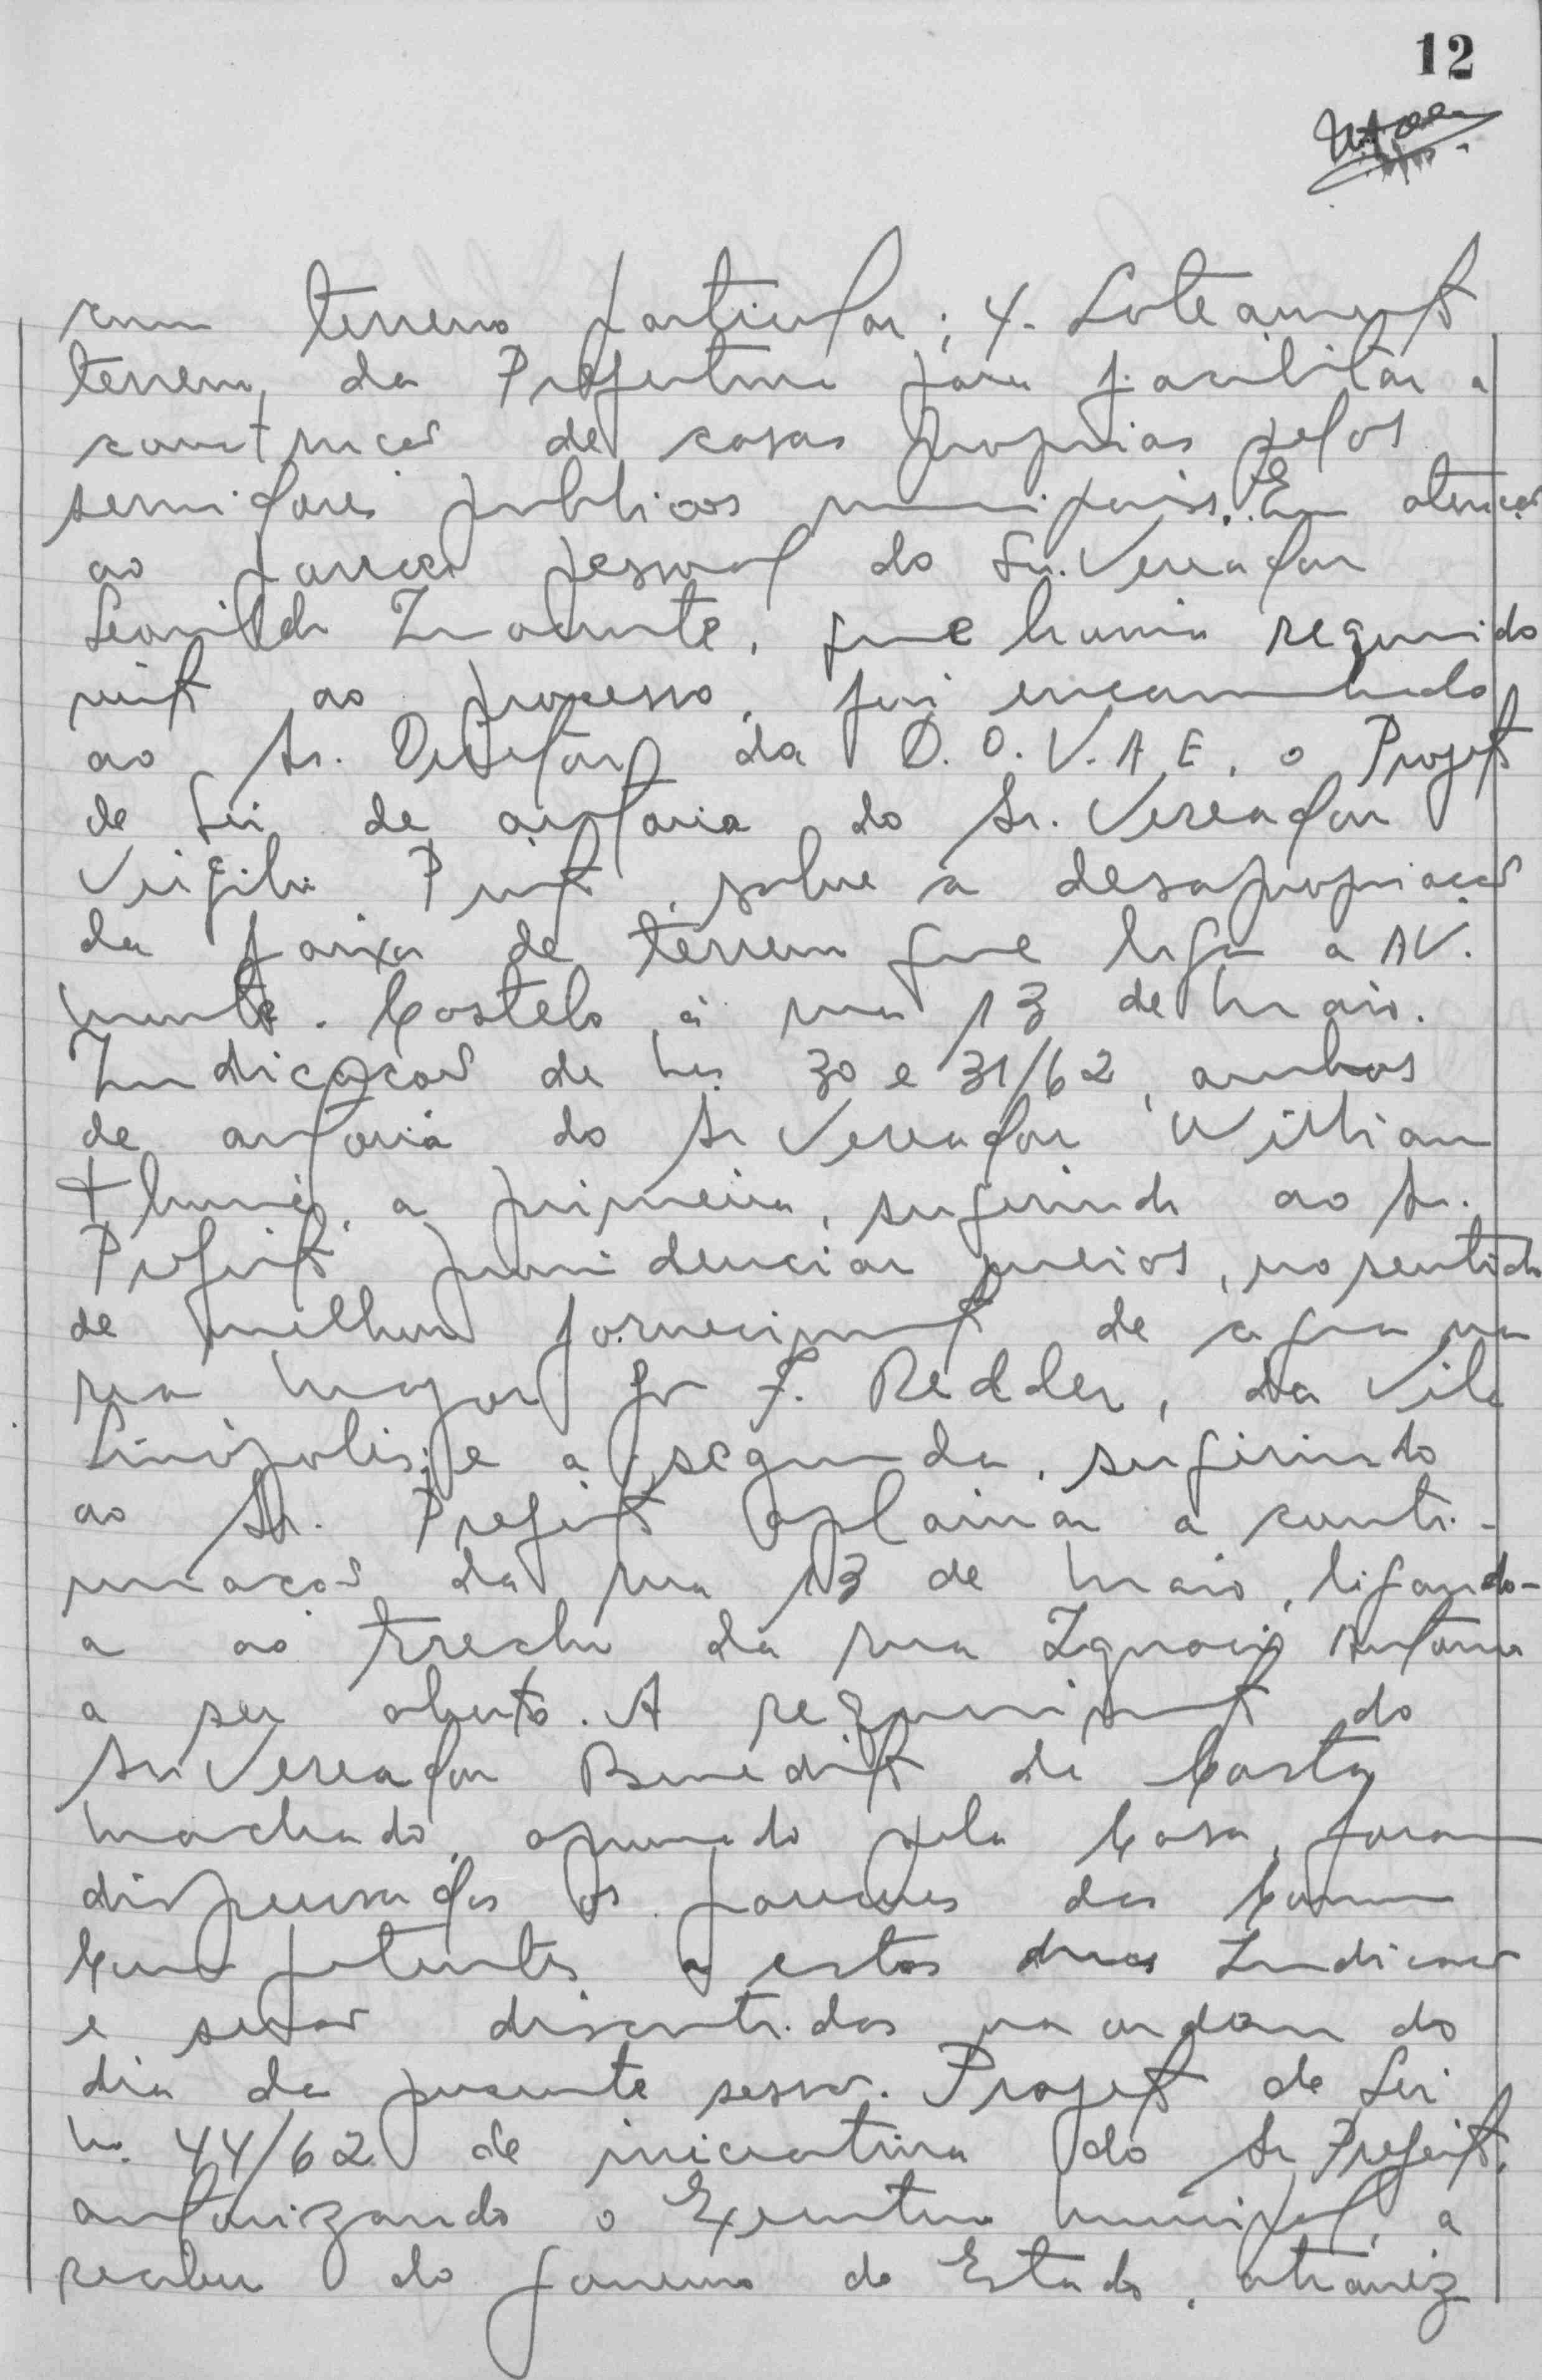 12
em terreno particular; 4. Loteamento
terreno, da Prefeitura para facilitar a
construção de casas proprias pelos
servidores publicos municipais. Em atenção
ao parecer pessoal do Sr. Vereador
Leonildo Inocente, que havia requerido
vista ao processo, foi encaminhado
ao Sr. Diretor da D.O.V.A.E. o Projeto
de Lei de autoria do Sr. Vereador
Virgilio Pinto, sobre a desapropriação
da faixa de terreno que liga a AV.
Monte. Castelo à rua 13 de Maio.
Indicação de Nos 30 e 31/62, ambos
de autoria do Sr Vereador William
a primeira, sugerindo ao Sr.
Prefeito providenciar meios, no sentido
de melhor fornecimento de agua na
rua Major F. Redder, da Vila
Linópolis; e a segunda, sugerindo
ao Sr. Prefeito aplainar a conti-
nuação da rua 13 de Maio, ligando-
a ao trecho da rua Ignacio Antonio
a ser aberto. A requerimento do
Sr. Vereador Benedito da Costa
Machado, aprovado pela Casa, foram
dispensados os pareceres das
Competentes a estas duas Indicação
e serão discutidas na ordem do
dia da presente sessão. Projeto de Lei
No. 44/62 de iniciativa do Sr Prefeito,
autorizando o Executivo Municipal, a
receber do Governo do Estado, atravéz